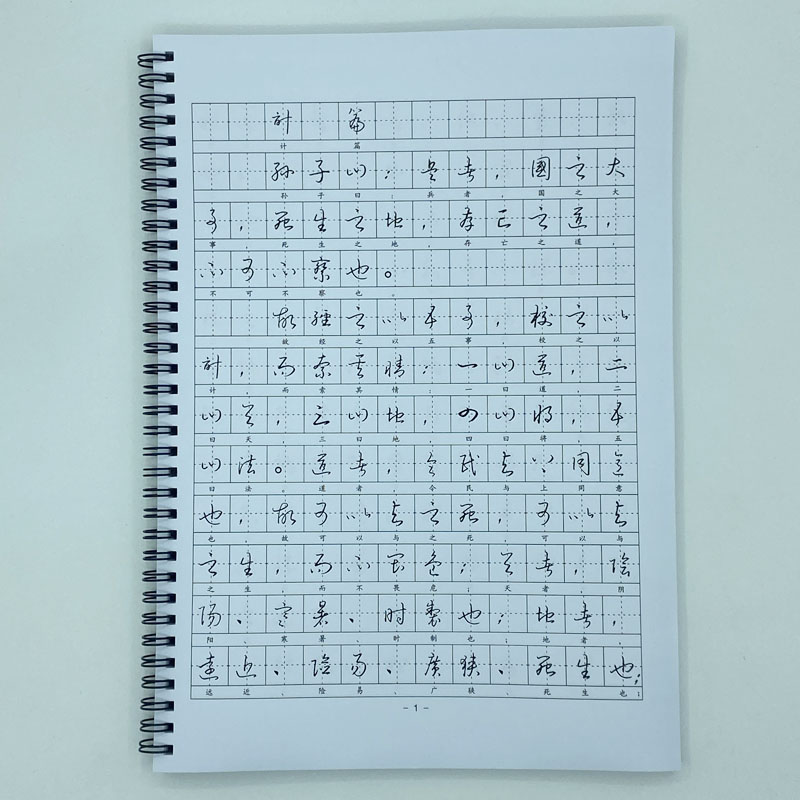 計篇
计篇
孙子曰：兵者，國之大
孙子曰：兵者，国之大
事，死生之地，存亡之道，
事，死生之地，存亡之道，
不可不察也。
不可不察也。
故經之以五事，校之以
故经之以五事，校之以
計，而索其情：一曰道，二
计，而索其情：一曰道，二
曰天，三曰地，四曰将，五
曰天，三曰地，四曰将，五
曰法。道者，令民与上同意
曰法。道者，令民与上同意
也，故可以与之死，可以与
也，故可以与之死，可以与
之生，而不畏危；天者，陰
之生，而不畏危；天者，阴
阳、寒暑、时製也；地者，
阳、寒暑、时制也；地者，
遠近、险易、廣狭、死生也；
远近、险易、广狭、死生也；
-1-